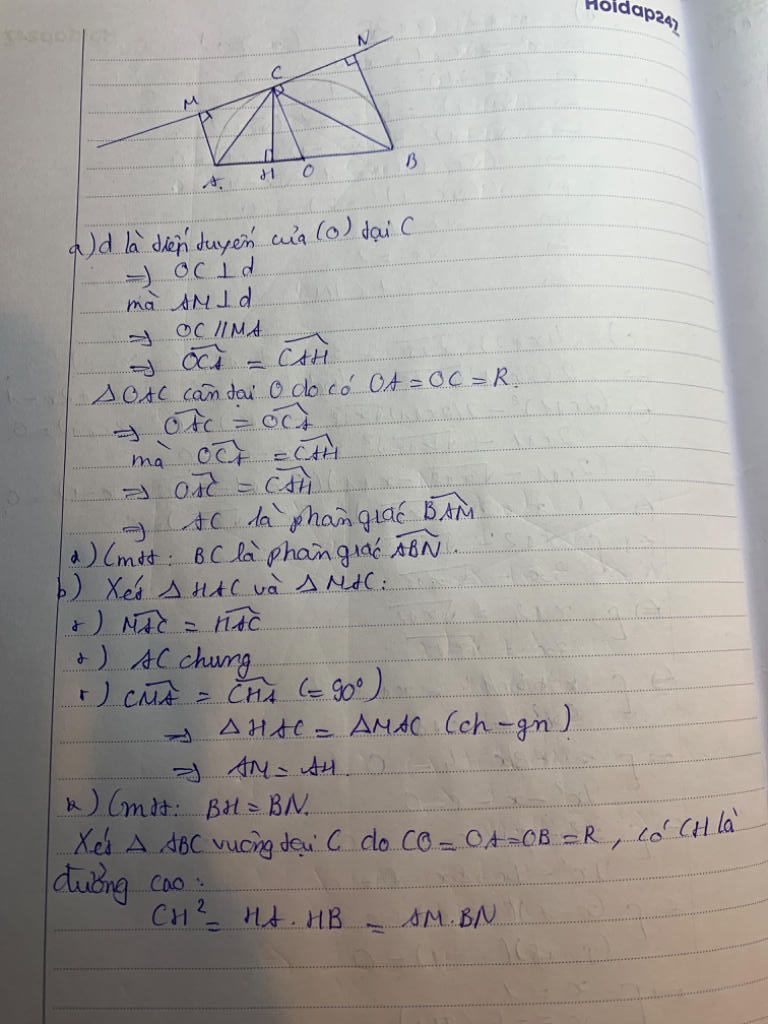 Hoidap247
N
C
M
A
H
O
B
a) d là tiếp tuyến của (O) tại C
=> OC ⊥ d
mà AM ⊥ d
=> OC // MA
=> OCA = CAH
△OAC cân tại O do có OA = OC = R.
=> OAC = OCA
mà OCA = CAH
=> OAC = CAH
=> AC là phân giác BAM
*) Cmtt: BC là phân giác ABN.
b) Xét △HAC và △MAC:
+) MAC = HAC
+) AC chung
+) CMA = CHA (= 90°)
=> △HAC = △MAC (ch-gn)
=> AM = AH.
*) Cmtt: BH = BN.
Xét △ ABC vuông tại C do CO = OA = OB = R, có CH là
đường cao:
CH² = HA . HB = AM . BN